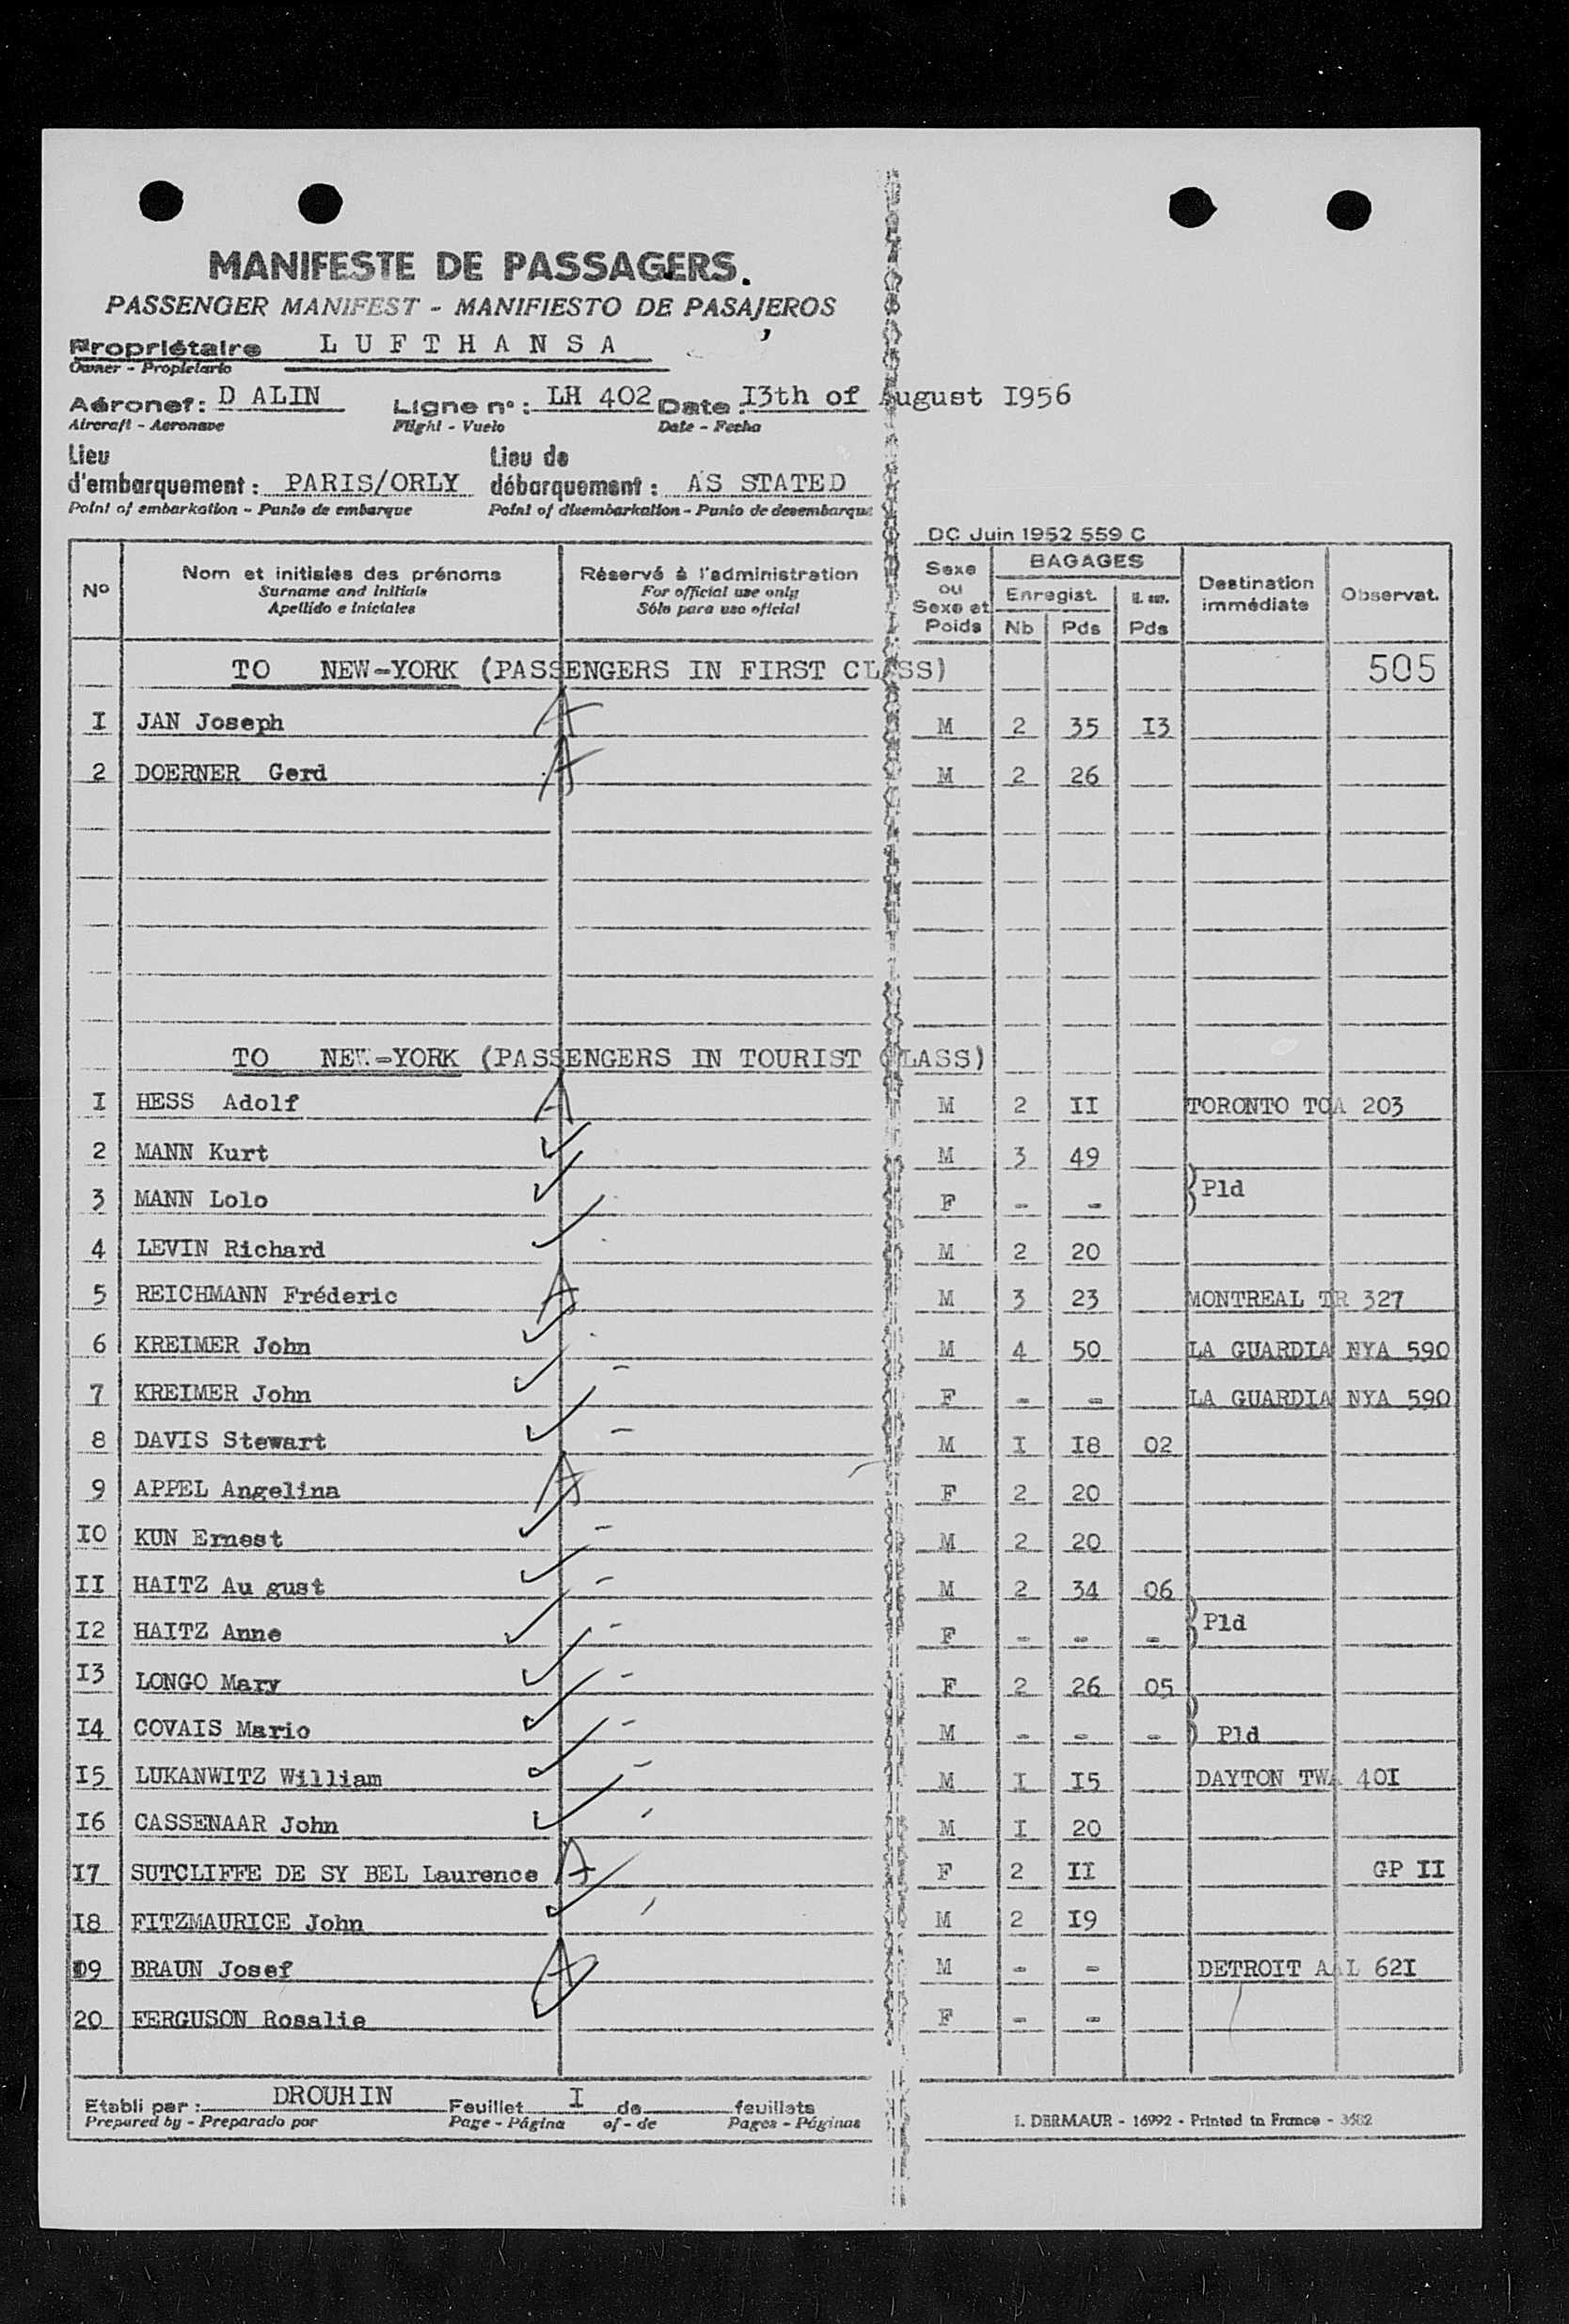 MANIFESTE DE PASSAGERS.
PASSENGER MANIFEST - MANIFIESTO DE PASAJEROS
Propriétaire L U F T H A N S A
Owner - Propietario
Aéronef: D ALIN Ligne n°: LH 402 Date: I3th of August I956
Aircraft - Aeronave Flight - Vuelo Date - Fecha
Lieu Lieu de
d'embarquement: PARIS/ORLY débarquement: AS STATED
Point of embarkation - Punto de embarque Point of disembarkation - Punto de desembarque
DC Juin 1952 559 C
N° Nom et initiales des prénoms Réservé à l'administration Sexe BAGAGES Destination Observat.
Surname and initials For official use only ou Enregist. immédiate
Apellido e iniciales Sólo para uso oficial Sexe et
Poids Nb Pds Pds
TO NEW-YORK (PASSENGERS IN FIRST CLASS) 505
I JAN Joseph A M 2 35 I3
2 DOERNER Gerd A M 2 26
TO NEW-YORK (PASSENGERS IN TOURIST CLASS)
I HESS Adolf A M 2 II TORONTO TCA 203
2 MANN Kurt M 3 49
3 MANN Lolo F - - Pld
4 LEVIN Richard M 2 20
5 REICHMANN Fréderic A M 3 23 MONTREAL TR 327
6 KREIMER John M 4 50 LA GUARDIA NYA 590
7 KREIMER John F - - LA GUARDIA NYA 590
8 DAVIS Stewart M I I8 02
9 APPEL Angelina A F 2 20
I0 KUN Ernest M 2 20
II HAITZ Au gust M 2 34 06
I2 HAITZ Anne F - - - Pld
I3 LONGO Mary F 2 26 05
I4 COVAIS Mario M - - - Pld
I5 LUKANWITZ William M I I5 DAYTON TWA 40I
I6 CASSENAAR John M I 20
I7 SUTCLIFFE DE SY BEL Laurence A F 2 II GP II
I8 FITZMAURICE John M 2 I9
09 BRAUN Josef A M - - DETROIT AAL 62I
20 FERGUSON Rosalie F - -
Etabli par: DROUHIN Feuillet I de feuillets
Prepared by - Preparado por Page - Página of - de Pages - Páginas
I. DERMAUR - 16992 - Printed in France - 3582